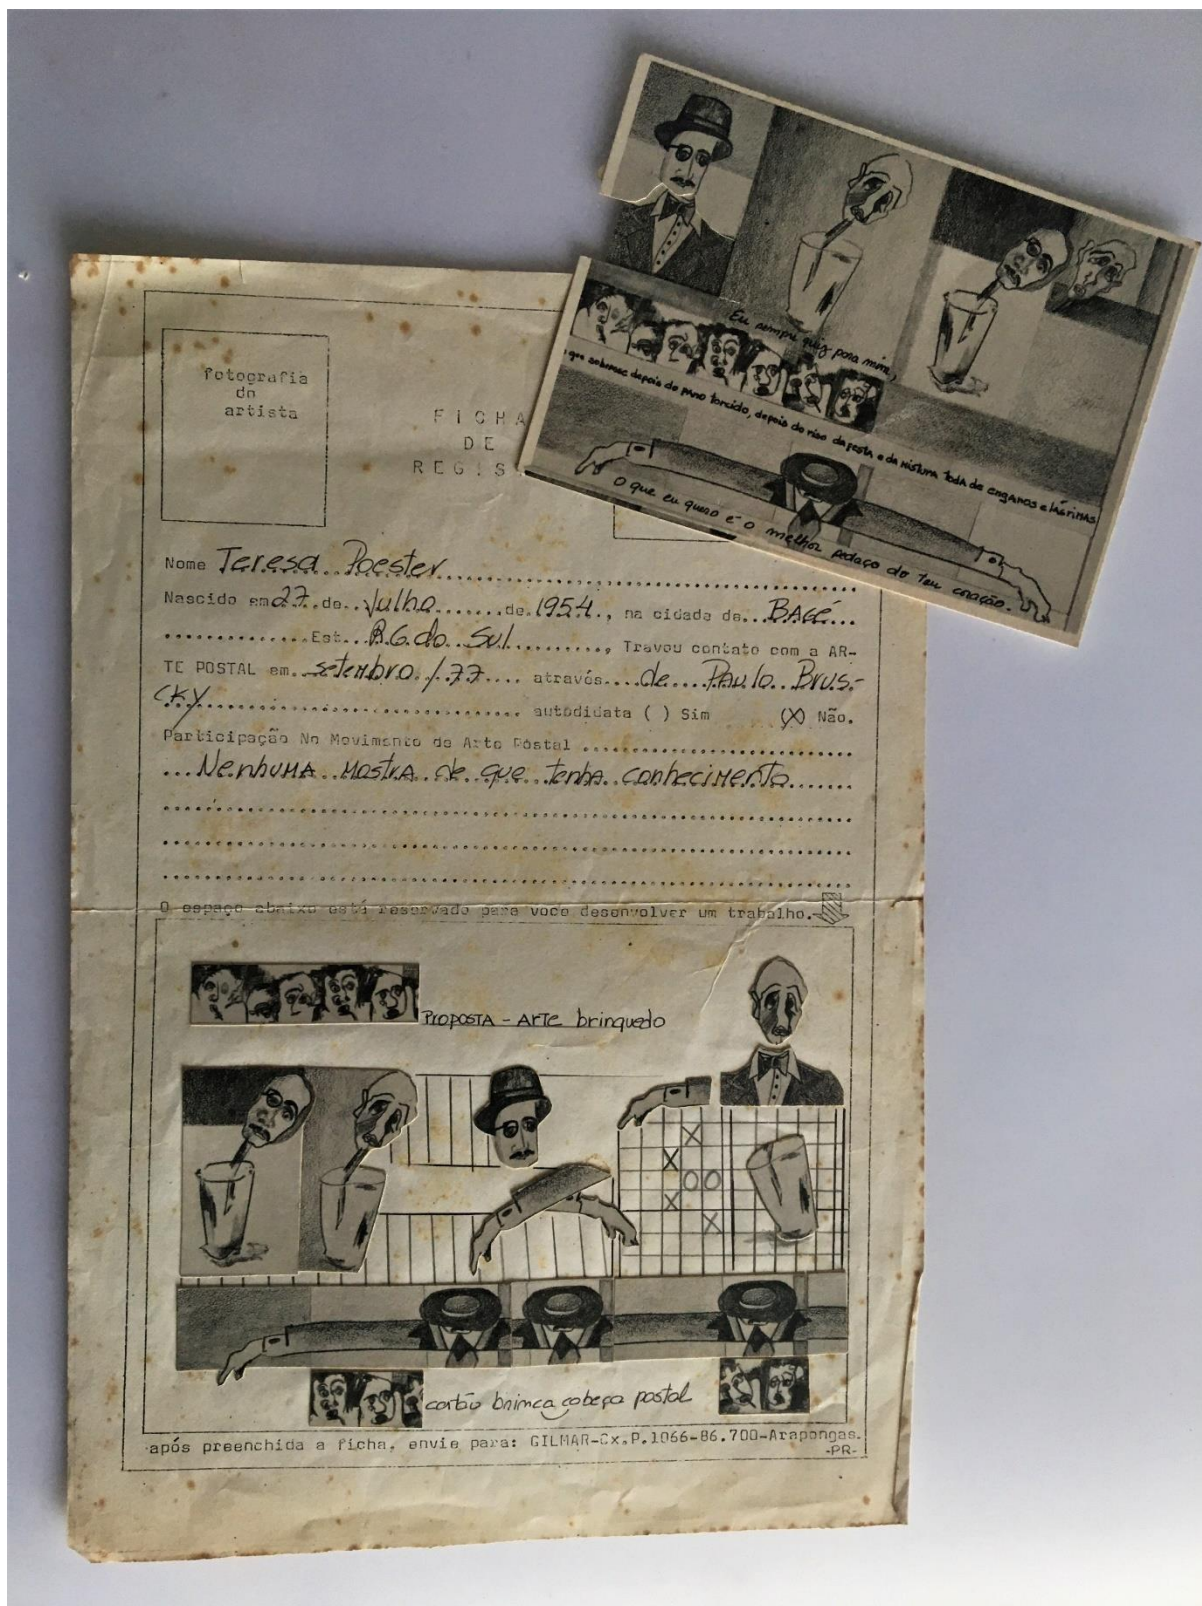 Eu sempre quiz para mim,
que sobrasse depois do pano torcido, depois do riso da festa e da mistura toda de enganos e lágrimas
O que eu quero é o melhor pedaço do teu coração.
fotografia
do
artista
FICHA
DE
REGIS
Nome Teresa Poester
Nascido em 27 de Julho de 1954, na cidade de BAGÉ
Est. R.G. do Sul, Travou contato com a AR-
TE POSTAL em setembro/77 através de PAULO BRUS-
CKY autodidata ( ) Sim (X) Não.
Participação No Movimento de Arte Postal
NenhuMA MostrA de que tenha conhecimento
O espaço abaixo está reservado para voce desenvolver um trabalho.
PROPOSTA - ARTE brinquedo
X
X
OO
X
X
cartão brinca cabeça postal
após preenchida a ficha, envie para: GILMAR-Cx.P.1066-86.700-Arapongas.
-PR-